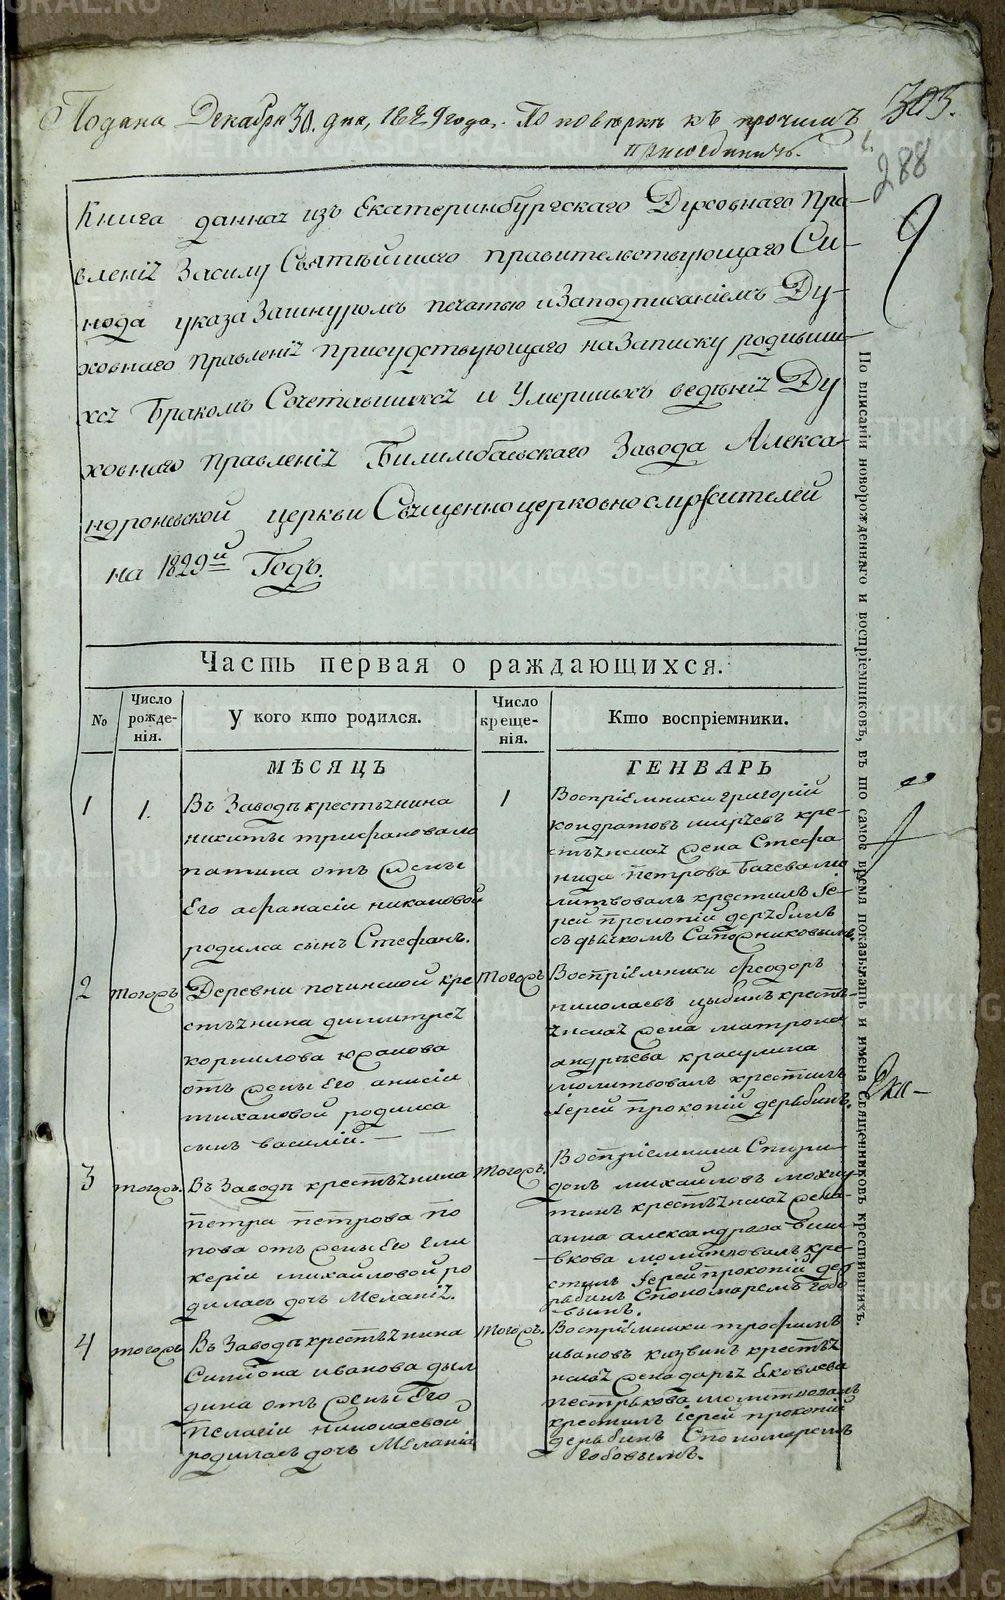 Подана Декабря 30. дня, 1829 года, По повѣркѣ къ прочимъ
присоединить.
303.
288
Книга данная изъ Екатеринбургскаго Духовнаго Пра-
вленія Засилу Святѣйшаго правительствующаго Си-
нода указа Зашнуромъ печатью иЗаподписаніемъ Ду-
ховнаго Правленія присудствующаго наЗаписку родивши-
хся Бракомъ Сочетавшихся и Умершихъ ведѣнія Ду
ховнаго правленія Билимбаевскаго Завода Алекса-
ндроневской церкви Священноцерковнослужителей
на 1829й Годъ.
Часть первая о раждающихся.
№
Число рожде-нія.
У кого кто родился.
Число креще-нія.
Кто воспріемники.
МѢСЯЦЪ
ГЕНВАРЬ
1
1.
Въ Заводѣ крестьянина
никиты трифановало
патина отъ жены
Его афанасіи никановой
родился сынъ Стефанъ.
1
Воспріемники григорій
кондратовъ ширяевъ кре-
стьянская жена Стефа
нида Петрова Бачевало
литвовалъ крестилъ Іе-
рей прокопій дерябинъ
съ дьячкомъ Сапожниковымъ.
2
тогожъ
Деревни починской кре
стьянина димитрея
корнилова южакова
отъ жены Его анисіи
тихановой родился
сынъ василій.
тогожъ
Воспріемники феодоръ
николаевъ цыбинъ кресть-
янская жена матрона
андреева красулина
молитвовалъ крестилъ
іерей прокопій дерябинъ.
3
тогожъ.
Въ Заводѣ крестьянина
петра петрова по
пова отъ жены Его Гли
керіи михайловой ро
дилась дочь Меланія.
тогожъ.
Воспріемники Спири-
донъ михайловъ
крестьянская жена
анна александрова
молитвовалъ кре-
стилъ Іерей прокопій дер
ябинъ Спономаремъ Гобо
вымъ.
4
тогожъ
Въ Заводѣ крестьянина
Симиона иванова дыл
дина отъ жены Его
Пелагіи николаевой
родилась дочь Меланія
тогожъ.
Воспріемники трофимъ
ивановъ кизвинъ крестья
нская жена дарья Яковлева
пестрякова молитвовалъ
крестилъ іерей прокопій
дерябинъ Спономаремъ
Гобовымъ.
По вписаніи новорожденнаго и воспріемниковъ, въ то самое время показывать и имена священниковъ крестившихъ.
METRIKI.GASO-URAL.RU